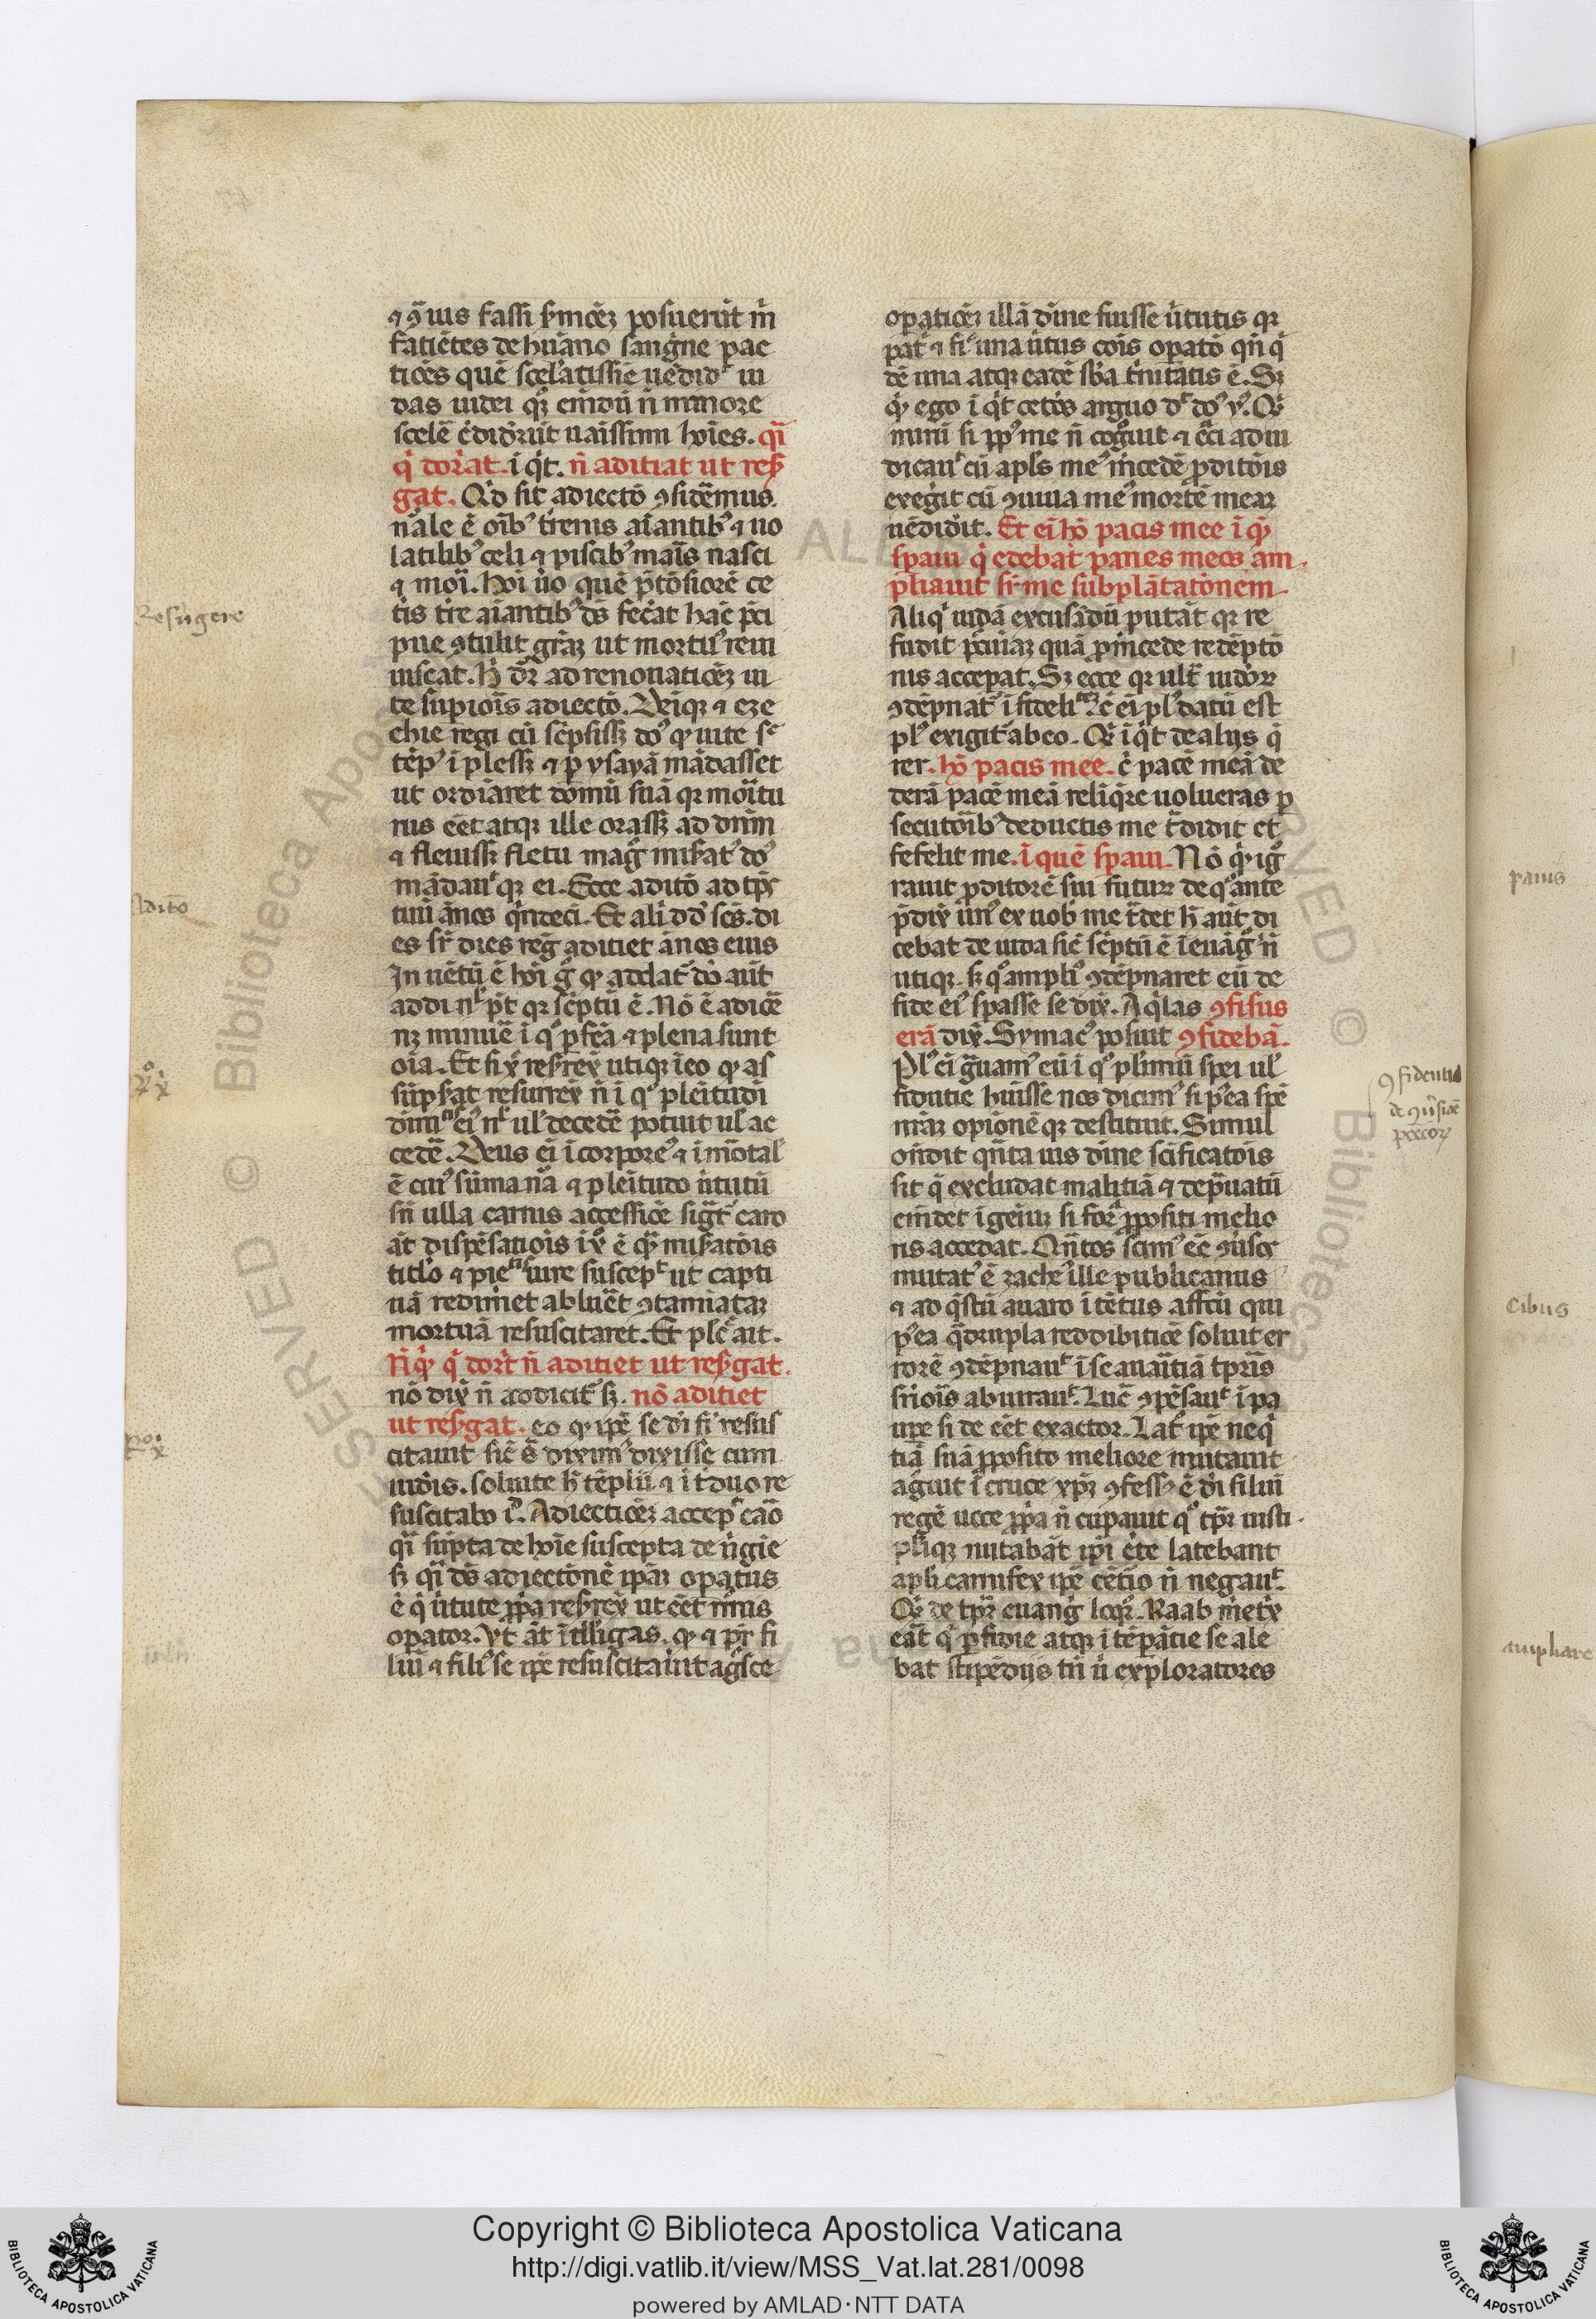 ⁊ ꝯ̃uis fassi s̄mõeꝫ posuerũt m̃
fatiẽtes de huãno sang̾ne pac
tiões quẽ sceľatissĩe uẽdid᷑ iu
das iudei qꝫ emẽdũ ñ minore
sceľe c̾did̾rũt uaissimi hoĩes. qꝫ
q̾ dorͥat. i q̾t. ñ aditiat ut res̾
gat. Qð sit adiectõ ꝯsid̾emus.
nãle ẽ oĩbꝰ tr̾enis aĩantibꝰ ⁊ uo
latilibꝰ celi ⁊ piscibꝰ maĩs nasci
⁊ moͥi. Hoĩ ũo quẽ p̃tõsiorẽ ce
tis tr̾e aĩantibꝰ dš fec̾at hãc p̃ci
pue ꝯtulit grãꝫ ut mortuꝰ reui
uiscat. H̾ dr̃ ad renouatiõeꝫ ui
te sup̾iorĩs adiectõ. Deĩqꝫ ⁊ eze
chie regi cũ sc̾psissꝫ doꝰ qꝫ uite s᷑
tẽpꝰ ĩplessꝫ ⁊ ꝑ ysayã mãdasset
ut ordiãret domũ suã qꝫ moͥitu
rus eẽt atqꝫ ille orassꝫ ad dnm̃
⁊ fleuissꝫ fletu mag̾ mis̾at᷑ doꝰ
mãdau᷑ qꝫ ei. Ecce aditõ ad tp̃s
tuũ ãnos q̾ndeci. Et alĩ dð scš. di
es sr̾ dies reg̾ aditiet ãnos eius
In uẽtũ ẽ hoĩ g̾ qꝫ adelat᷑ dõ aũt
addi n᷑ p̃t qꝫ sc̾ptũ ẽ. Nõ ẽ adicẽ
nꝫ minuẽ ĩ qͦ ꝑfcã ⁊ plena sunt
oĩa. Et si x̃ resr̾ex̾ utiqꝫ ĩeo qꝫ as
sũps̾at resurrex̾ ñ ĩ qͦ pleĩtudĩ
ciuiͣ eiꝰ n᷑ uľ decedẽ potuit uľ ac
cedẽ. Deus eĩ ĩcorporeꝰ ⁊ ĩmõtaľ
ẽ cuiꝰ sũma nã ⁊ pleĩtudo ũtutũ
sñ ulla carnis accessiõe sig̾t᷑ caro
ãt dispẽsatiõis ix̃ ẽ qꝫ mis̾atõis
titlo ⁊ pieͣ iure suscep᷑ ut capti
uã redim̾et abluẽt ꝯtamiãtaꝫ
mortuã resuscitaret. Et plẽ ait.
Ñqꝫ q̾ dorͥt ñ aditiet ut res̾gat.
nõ dix̾ ñ addicit᷑ sꝫ. nõ aditiet
ut res̾gat. eo qꝫ ipẽ se dĩ fĩ resus
citauit sic̾ s̃ diximꝰ dixisse cum
iudis. Soluite h̾ tẽplũ ⁊ ĩ t̾duo re
suscitabo iꝰ. Adiectiõeꝫ accep᷑ caõ
qꝫ sũpta de hoĩe suscepta de ũgie
sꝫ qꝫ dš adiectõnẽ ipãꝫ op̾atus
ẽ q̾ ũtute ꝓpa res̾rex̾ ut eẽt nr̃is
op̾ator. Vt ãt ĩtlligas. qꝫ ⁊ pr̃ fi
liũ ⁊ filiꝰ se ipẽ resuscitauit ag̾sce
op̾atiõeꝫ illã dĩne fuisse ũtutis qꝫ
patͥ ⁊ fi᷑ una ũtus cõis op̾atõ qñ qͥ
dẽ una atqꝫ eadẽ sba trĩnitatis ẽ. Sꝫ
qꝫ ego ĩ q̾t cet̾os arguo d᷑ doꝰ yͦ. Qꝫ
mirũ si ꝓpꝰ me ñ cog̾uit ⁊ c̾ci adiu
dicau᷑ cũ apľs meꝰ m̾cedẽ ꝓditõis
exeg̾it cũ ꝯuiua meꝰ mortẽ meaꝫ
uẽdid̾it. Et eĩ hõ pacis mee ĩ qͦ
sp̾aui qͥ edebat panes meos am
pliauit sr̾ me subplãtationem.
Aliqͥ iudã excusãdũ putãt qꝫ re
fudit p̾cũiaꝫ quã ꝓ m̾cede redẽptõ
nis accepat. Sꝫ ecce qꝫ ult̾ iudoꝝ
ꝯdẽpnat᷑ ĩfideliͣᷓ. c̾ eĩ plꝰ datũ est
plꝰ exigit᷑ ab eo. Qꝫ ĩ q̾t de alijs qͥ
rer. hõ pacis mee. c̾ pacẽ meã de
derã pacẽ meã reliq̾re uolueras ꝑ
secutoĩbꝰ deductis me tͣdidit et
fefelit me. ĩ quẽ sp̾aui. Nõ qꝫ ig̾
rauit ꝓditorẽ sui futurꝫ de qͦ ante
p̃dix̾ unꝰ ex uob̾ me tͣdet h̾ aũt di
cebat de iuda sic̾ sc̾ptũ ẽ ĩeuãg̾ ñ
utiqꝫ. sꝫ qͦ ampliꝰ ꝯdẽpnaret eũ de
fide eiꝰ sp̾asse se dix̾. Aq̾las ꝯfisus
erã dix̾. Symacꝰ posuit ꝯfidebã.
Plꝰ eĩ g̾uamꝰ eũ ĩ qͦ pl̾imũ spei uľ
fidutie huisse nos dicimꝰ si p̾ea spẽ
nr̃aꝫ opiõnẽ qꝫ destituit. Simul
on̾dit qñta uis dĩne sc̾ificatõis
sit q̾ excludat malitiã ⁊ depͣuatũ
emẽdet ĩgeiũꝫ si forͣ ꝓpositi melio
ris accedat. Qñtos scim̾ eẽ ꝯũsos
mutatꝰ ẽ zacheꝰ ille publicanus
⁊ ad q̾stũ auaro ĩtẽtus affcũ qui
p̾ea q̾drupla reddibitiõe soluit er
rorẽ ꝯdẽpnau᷑ ĩ se auaͥtiã tpr̃is
sr̾ioĩs abiurau᷑. Lucͣ ꝯpẽsau᷑ ĩ pa
upe si de eẽt exactor. Latͦ ipẽ neq̾
tiã suã ꝓposito meliore mutauit
ag̾uit ĩ cruce xp̃ꝫ ꝯfessꝰ ẽ dĩ filiũ
regẽ uoce ꝓpa ñ cupauit qͦ tp̃r iusti
pliqꝫ nutabãt ip̃i ete latebant
apľi carnifex ipẽ cẽt̾io ñ negau᷑.
Qꝫ de tp̃r euang̾ loqꝛ. Raab m̾etͥx
eãt qͥ ꝑfidie atqꝫ ĩtẽpãtie se ale
bat stipẽdijs tñ ũ exploratores
Resũgere
Aditõ
ꝯfidentia
de ꝯũsiõe
peccoꝝ
panis
Cibus
ampliare
Copyright © Biblioteca Apostolica Vaticana
http://digi.vatlib.it/view/MSS_Vat.lat.281/0098
powered by AMLAD·NTT DATA
BIBLIOTECA APOSTOLICA VATICANA
BIBLIOTECA APOSTOLICA VATICANA